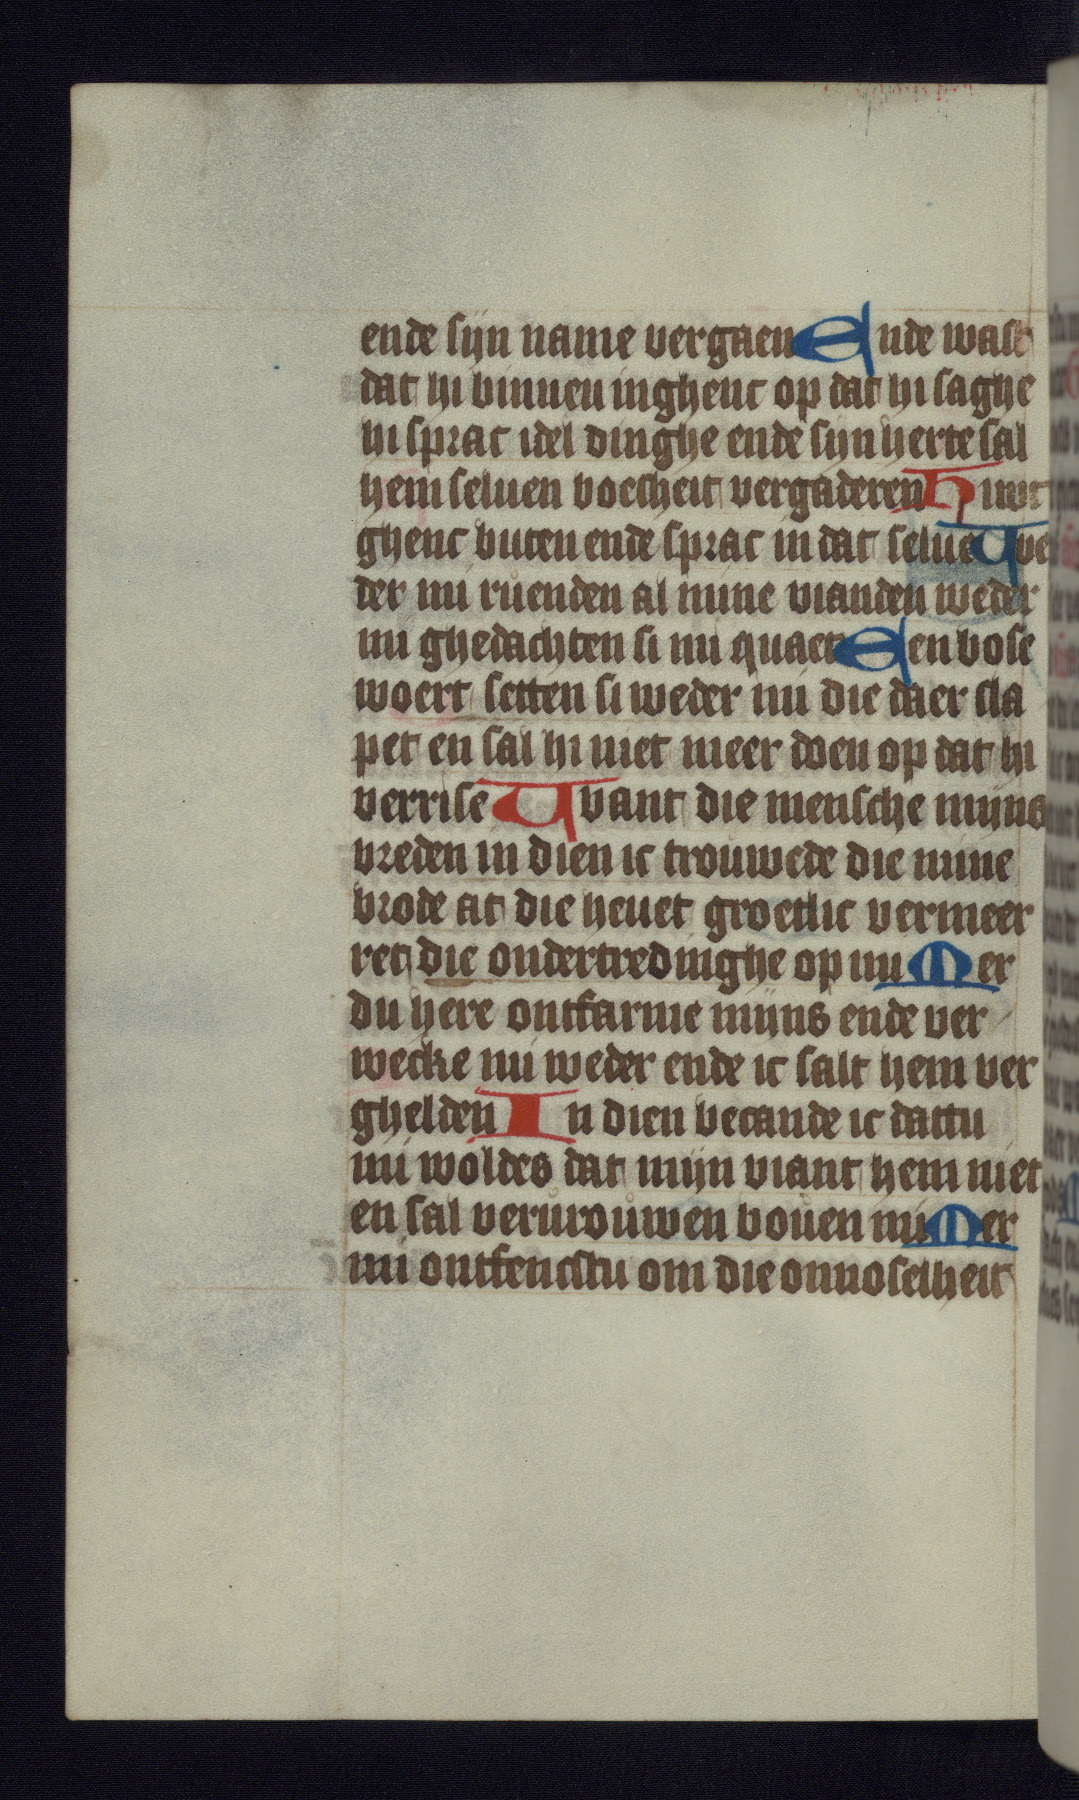 ende sijn name vergaen Ende wast
dat hi binnen inghenc op dat hi saghe
hi sprac idel dinghe ende sijn herte sal
hem seluen boesheit vergaderen Hi wt
ghenc buten ende sprac in dat selue We
der mi ruenden al mine vianden weder
mi ghedachten si mi quaet Een bose
woert setten si weder mi die daer sla
pet en sal hi niet meer doen op dat hi
verrise Want die mensche mijns
vreden in dien ic trouwede die mine
brode at die heuet groetlic vermeer
ret die ondertredinghe op mi Mer
du here ontfarme mijns ende ver
wecke mi weder ende ic salt hem ver
ghelden In dien becande ic dattu
mi woldes dat mijn viant hem niet
en sal vervrouwen bouen mi Mer
mi ontfencstu om die onnoselheit